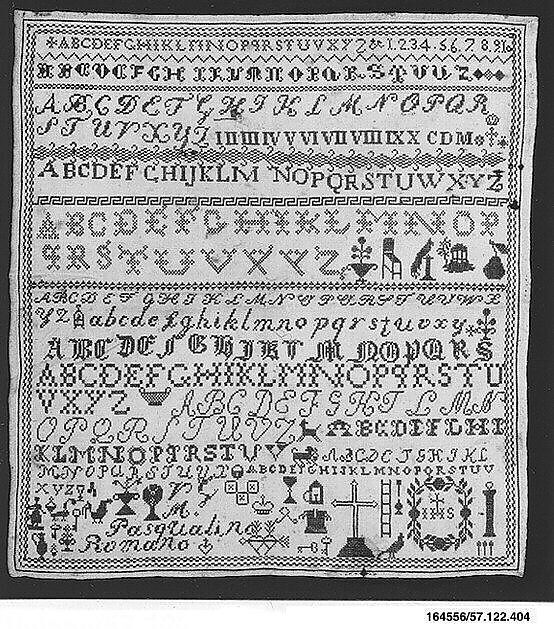 ABCDEFGHIKLMNOPQRSTUVXYZ&1.2.3.4.5.6.7.8.9.
ABCDEFGHIKLMNOPQRSTVUZ
ABCDEFGHIKLMNOPQR
STUVXYZ IIIIIIIVVVIVIIVIIIIXX CDM
ABCDEFGHIJKLMNOPQRSTUWXYZ
ABCDEFGHIKLMNOP
QRSTUVXYZ
ABCDEFGHIKLMNOPQRSTUVWX
YZ abcdefghiklmnopqrstuvxy
ABCDEFGHIKLMNOPQRS
ABCDEFGHIKLMNOPQRSTU
VXYZ ABCDEFGHIKLMN
OPQRSTUVZ ABCDEFGHI
KLMNOPQRSTV ABCDEFGHIKL
MNOPQRSTUVZ ABCDEFGHIJKLMNOPQRSTUV
XYZ
Pasqualina
Romano
164556/57.122.404